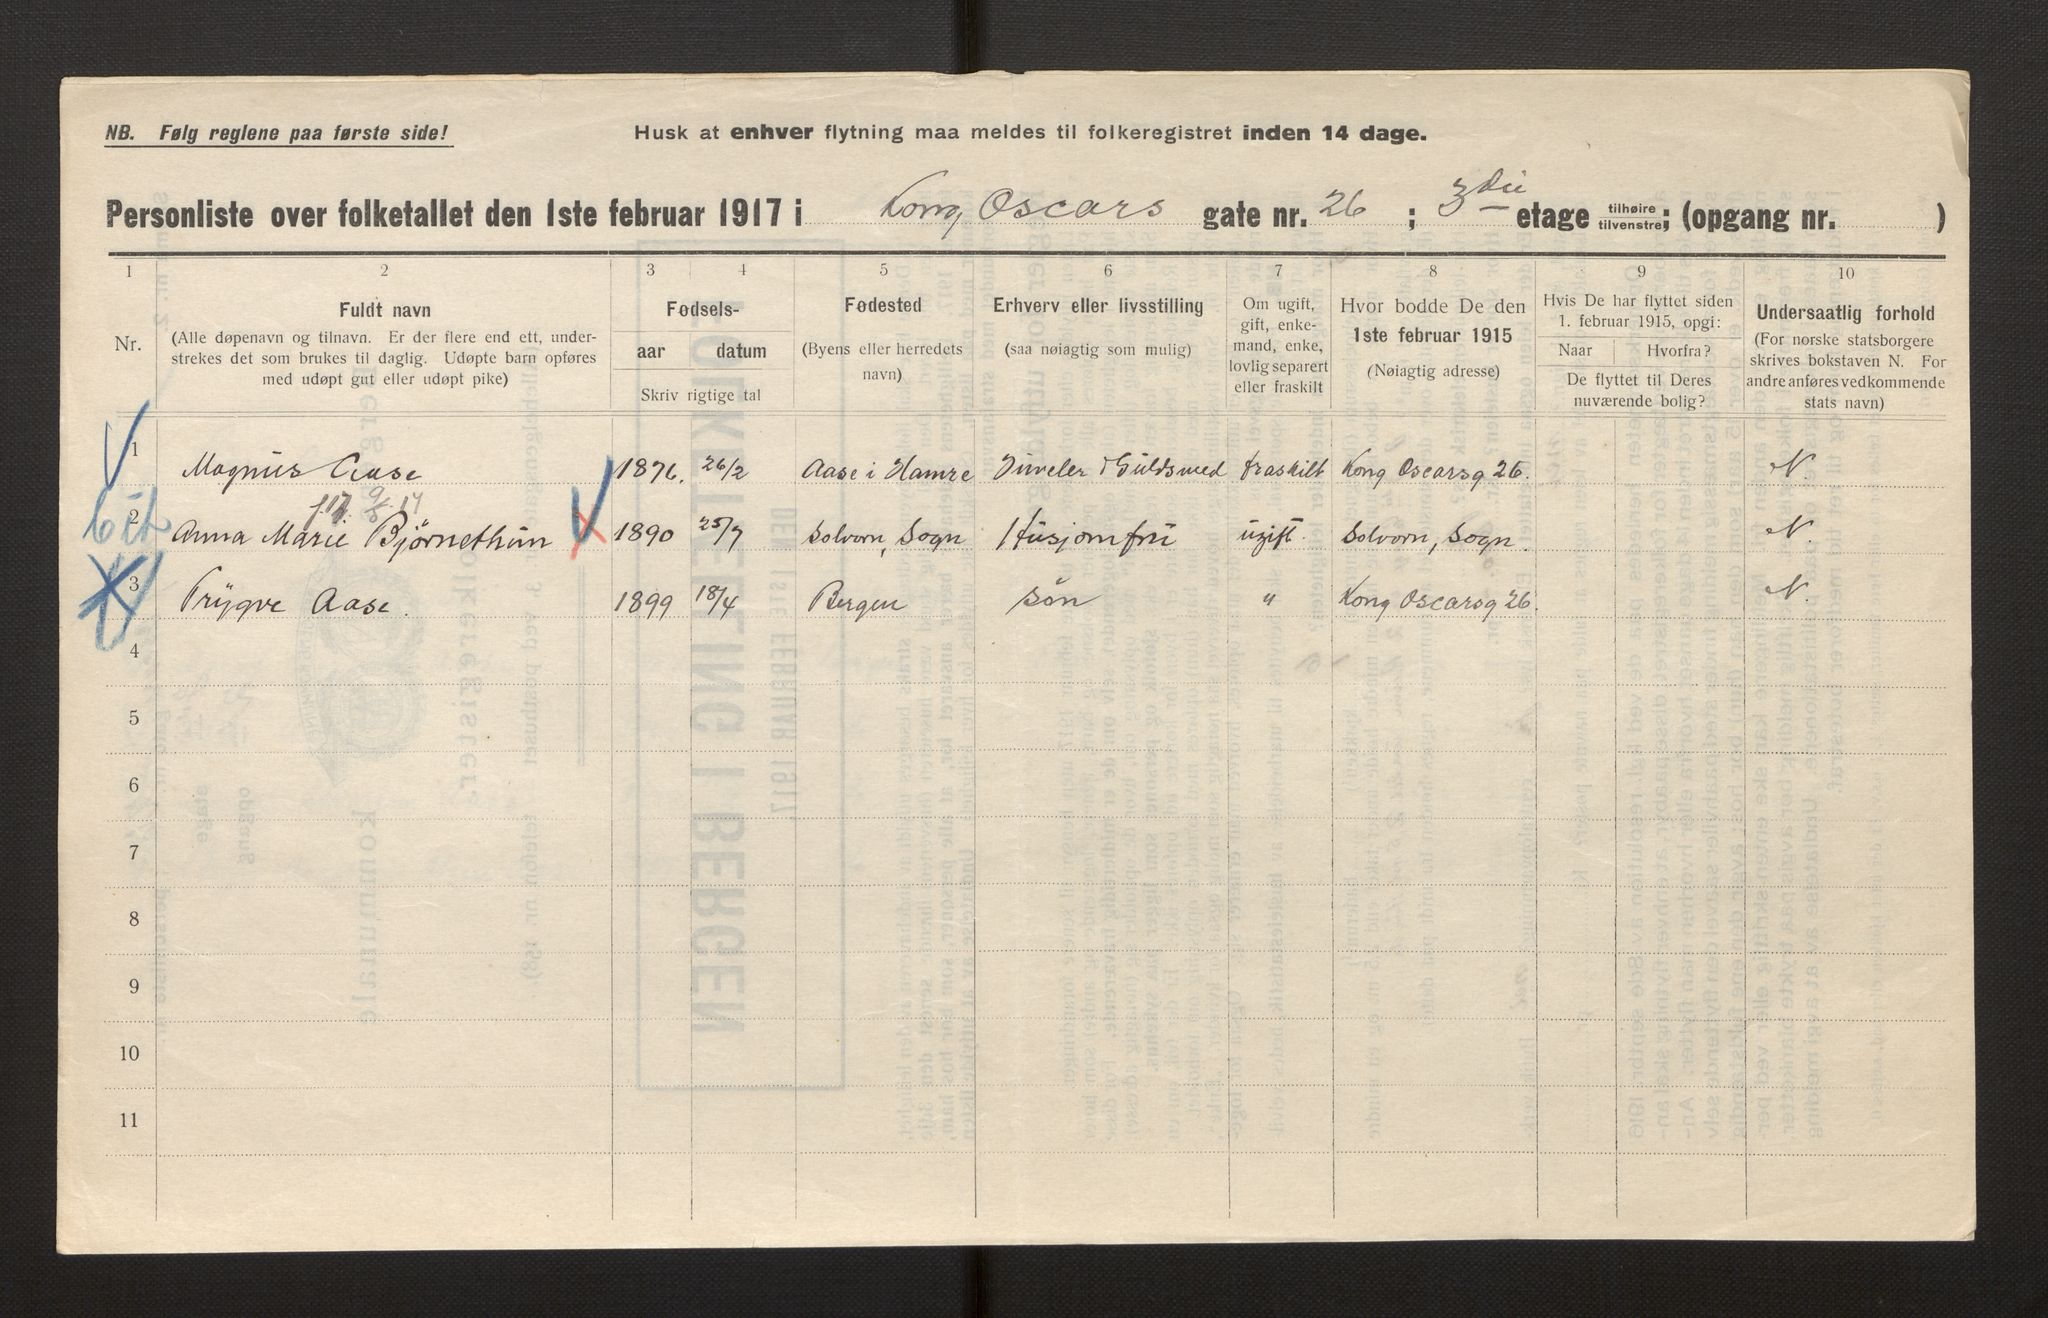 NB. Følg reglene paa første side!
Husk at enhver flytning maa meldes til folkeregistret inden 14 dage.
Personliste over folketallet den 1ste februar 1917 i Kong Oscars gate nr. 26 ; 3die etage tilhøire tilvenstre; (opgang nr. )
1 2 3 4 5 6 7 8 9 10
Nr.
Fuldt navn
(Alle døpenavn og tilnavn. Er der flere end ett, under-
strekes det som brukes til daglig. Udøpte barn opføres
med udøpt gut eller udøpt pike)
Fødsels-
aar datum
Skriv rigtige tal
Fødested
(Byens eller herredets
navn)
Erhverv eller livsstilling
(saa nøiagtig som mulig)
Om ugift,
gift, enke-
mand, enke,
lovlig separert
eller fraskilt
Hvor bodde De den
1ste februar 1915
(Nøiagtig adresse)
Hvis De har flyttet siden
1. februar 1915, opgi:
Naar Hvorfra?
De flyttet til Deres
nuværende bolig?
Undersaatlig forhold
(For norske statsborgere
skrives bokstaven N. For
andre anføres vedkommende
stats navn)
1 Magnus Aase 1876. 26/2 Aase i Hamre Juveler & Guldsmed fraskilt Kong Oscarsg 26. N.
2 Anna Marie Björnethun 1890 25/7 Solvorn, Sogn Husjomfru ugift. Solvorn, Sogn. N.
3 Trygve Aase. 1899 18/4 Bergen Søn " Kong Oscarsg 26. N.
4
5
6
7
8
9
10
11